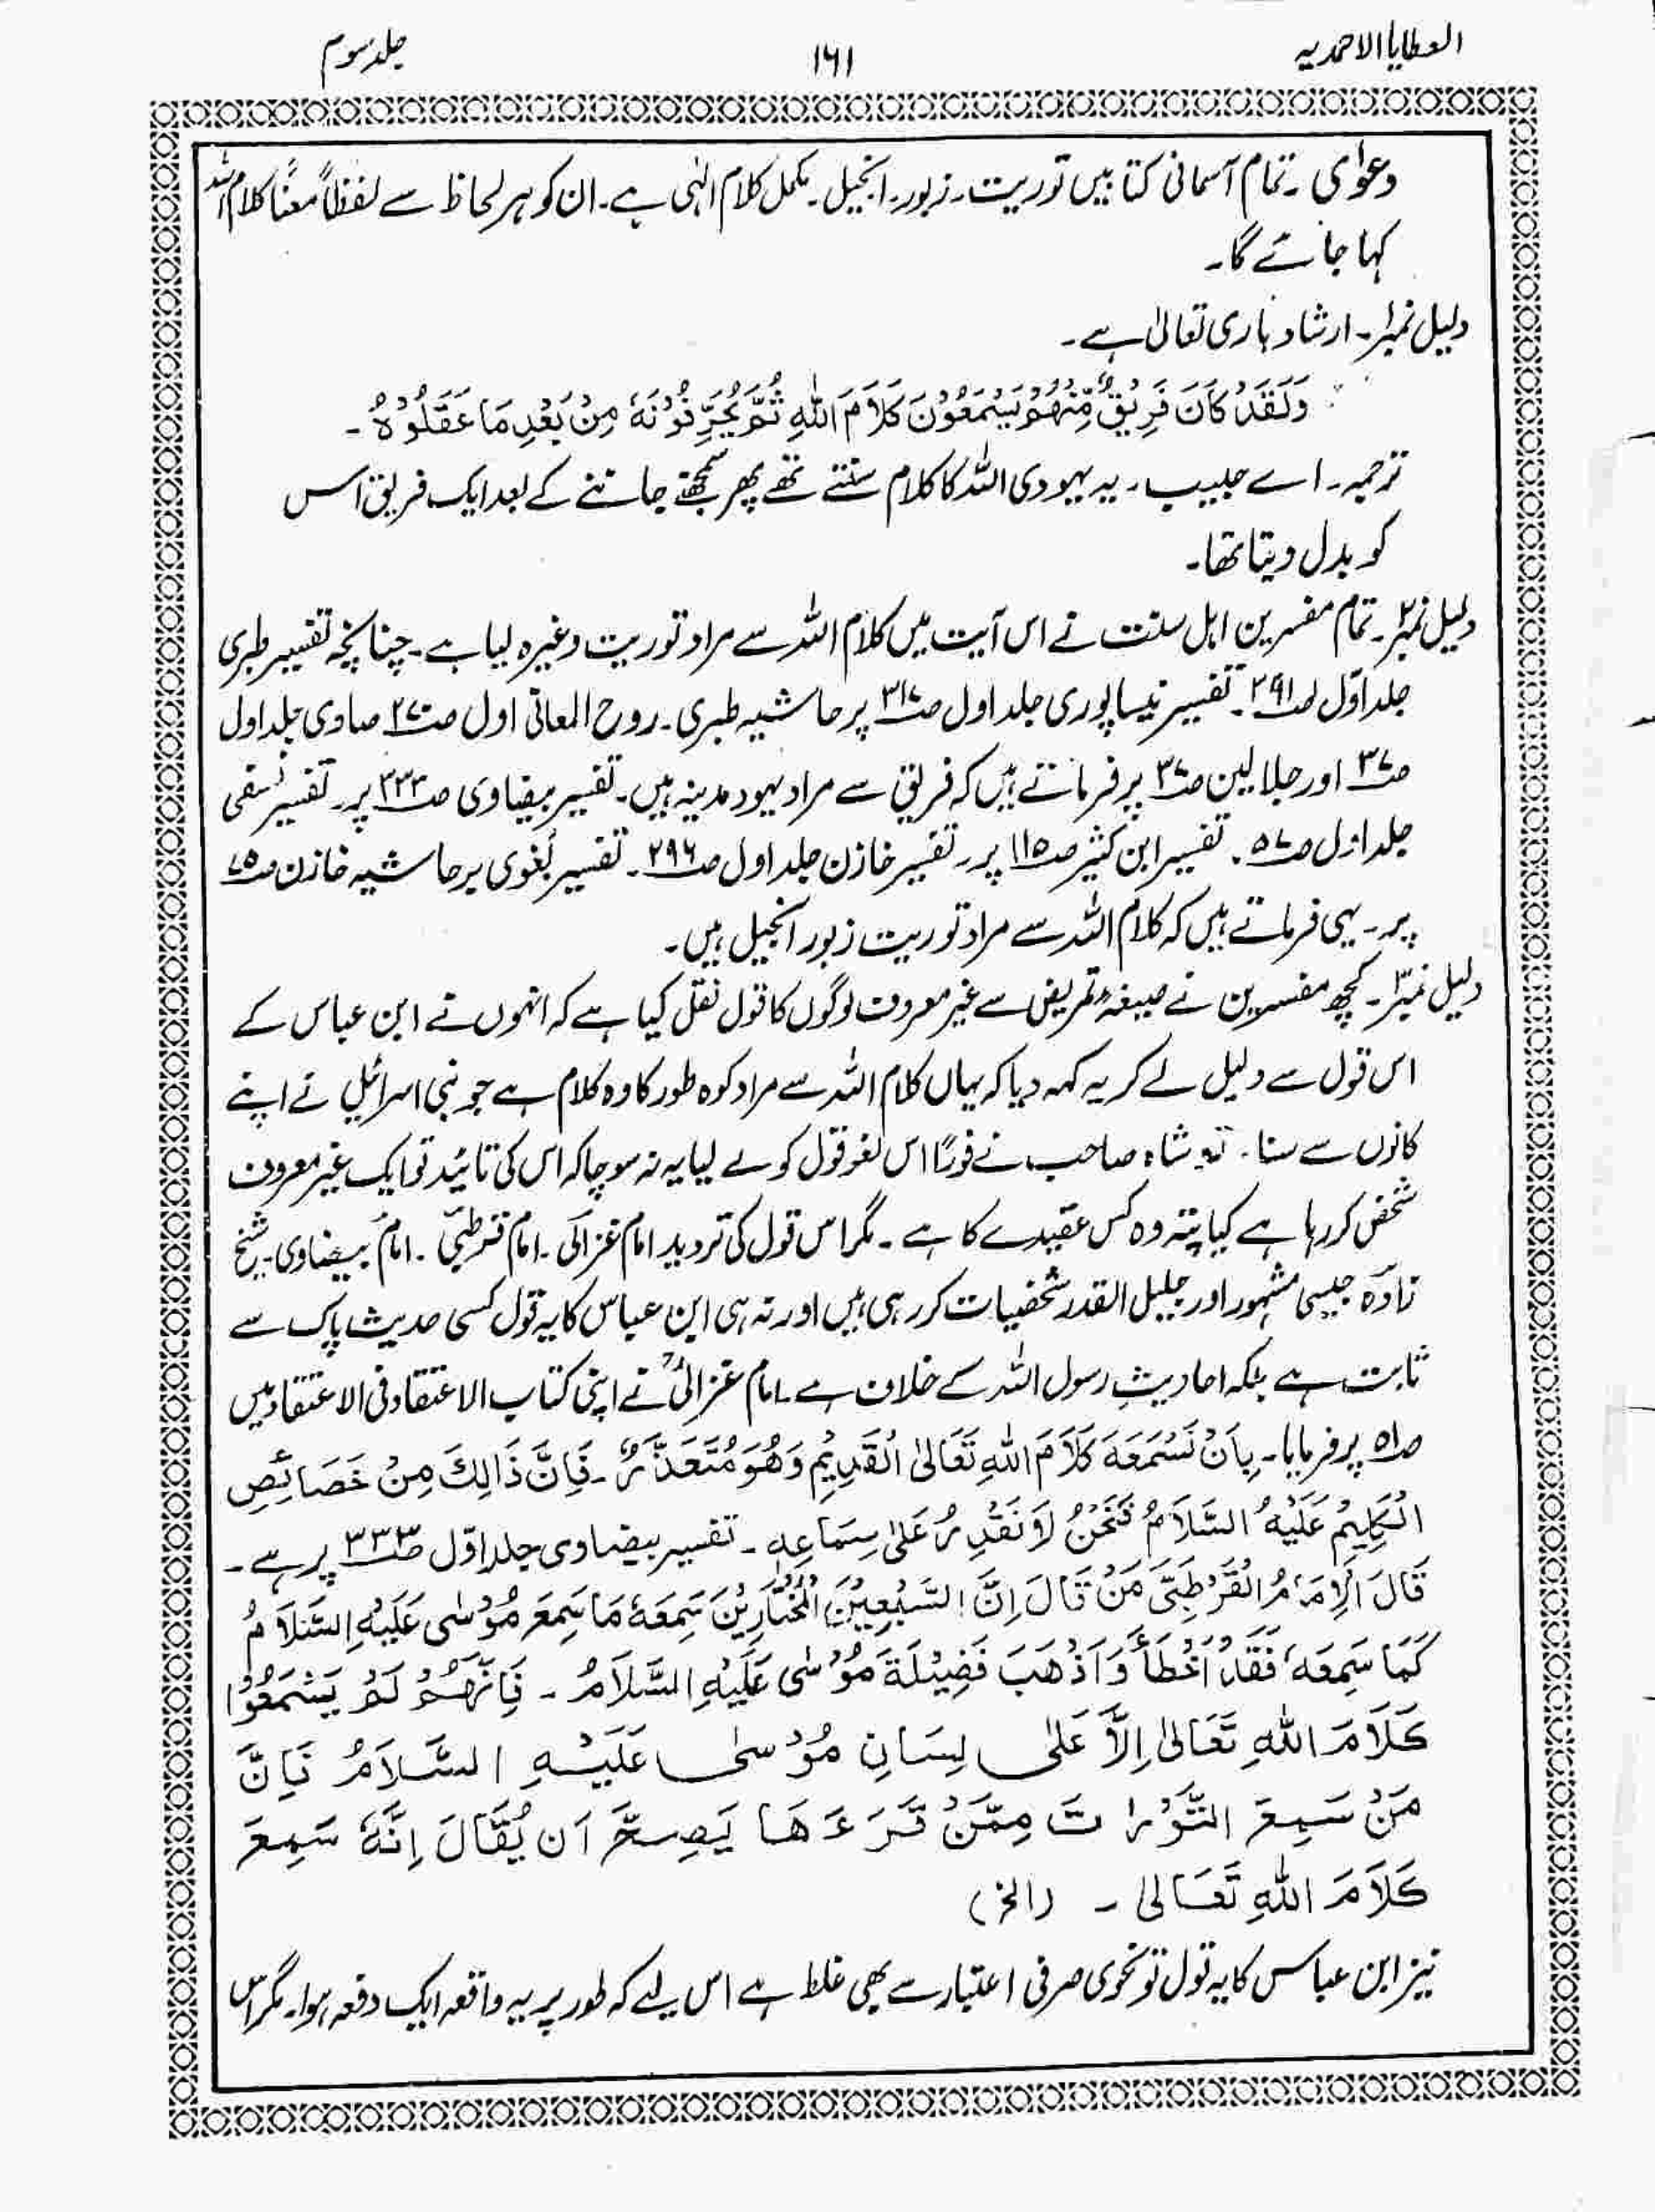 العطایا الاحمدیہ
۱۶۱
جلد سوم
دعوٰی ۔ تمام آسمانی کتابیں توریت۔ زبور۔ انجیل۔ مکمل کلام الٰہی ہے۔ ان کو ہر لحاظ سے لفظاً معنًا کلام اللہ
کہا جائے گا۔
دلیل نمبر۱۔ ارشاد باری تعالیٰ ہے۔
وَلَقَدْ کَانَ فَرِیْقٌ مِّنْهُمْ یَسْمَعُوْنَ کَلَامَ اللهِ ثُمَّ یُحَرِّفُوْنَهٗ مِنْ بَعْدِ مَا عَقَلُوْهُ ۔
ترجمہ۔ اے حبیب۔ یہ یہودی اللہ کا کلام سنتے تھے پھر سمجھتے جانتے کے بعد ایک فریق اس
کو بدل دیتا تھا۔
دلیل نمبر۲۔ تمام مفسرین اہل سنت نے اس آیت میں کلام اللہ سے مراد توریت وغیرہ لیا ہے۔ چنانچہ تفسیر طبری
جلد اوّل صـ۲۹۱۔ تفسیر نیساپوری جلد اول صـ۳۱۷ پر حاشیہ طبری۔ روح المعانی اول صـ۲۷۰ صاوی جلد اول
صـ۳۷ اور جلالین صـ۳۷ پر فرماتے ہیں کہ فریق سے مراد یہود مدینہ ہیں۔ تفسیر بیضاوی صـ۳۳۳ پر۔ تفسیر نسفی
جلد اوّل صـ۵۷۔ تفسیر ابن کثیر صـ۱۱۵ پر۔ تفسیر خازن جلد اول صـ۲۹۶۔ تفسیر بُغوی بر حاشیہ خازن صـ۷۵
پر۔ یہی فرماتے ہیں کہ کلام اللہ سے مراد توریت زبور انجیل ہیں۔
دلیل نمبر۳۔ کچھ مفسرین نے صیغۂ تمریض سے غیر معروف لوگوں کا قول نقل کیا ہے کہ انہوں نے ابن عباس کے
اس قول سے دلیل لے کر یہ کہہ دیا کہ یہاں کلام اللہ سے مراد کوہ طور کا وہ کلام ہے جو بنی اسرائیل نے اپنے
کانوں سے سنا۔ تو شاہ صاحب نے فورًا اس لغو قول کو لے لیا یہ نہ سوچا کہ اس کی تائید تو ایک غیر معروف
شخص کر رہا ہے کیا پتہ وہ کس عقیدے کا ہے۔ مگر اس قول کی تردید امام غزالی۔ امام قرطبی۔ امام بیضاوی۔ شیخ
زادہ جیسی مشہور اور جلیل القدر شخصیات کر رہی ہیں اور نہ ہی ابن عباس کا یہ قول کسی حدیث پاک سے
ثابت ہے بلکہ احادیثِ رسول اللہ کے خلاف ہے۔ امام غزالیؒ نے اپنی کتاب الاعتقاد فی الاعتقاد میں
صـ۵۱ پر فرمایا۔ بِاَنْ نَسْمَعَهَ کَلَامَ اللهِ تَعَالیٰ الْقَدِیْمِ وَهُوَ مُتَعَذَّرٌ۔ فَاِنَّ ذَالِكَ مِنْ خَصَائِصِ
الْکَلِیْمُ عَلَیْهِ السَّلَامُ فَنَحْنُ لَا نَقْدِرُ عَلیٰ سِمَاعِهٖ۔ تفسیر بیضاوی جلد اوّل صـ۳۳۳ پر ہے۔
قَالَ الْاِمَامُ الْقَرْطِبِیّ مَنْ قَالَ اِنَّ السَّبْعِیْنَ الْمُخْتَارِیْنَ سَمِعَهٗ مَا سَمِعَ مُوْسٰی عَلَیْهِ السَّلَامُ
کَمَا سَمِعَهٗ فَقَدْ اَخْطَأَ وَاَذْهَبَ فَضِیْلَةَ مُوْسٰی عَلَیْهِ السَّلَامُ ۔ فَاِنَّهُمْ لَمْ یَسْمَعُوْا
کَلَامَ اللهِ تَعَالیٰ اِلَّا عَلٰی لِسَانِ مُوْسٰی عَلَیْهِ السَّلَامُ فَاِنَّ
مَنْ سَمِعَ التَّوْرَاتَ مِمَّنْ قَرَءَهَا یَصِحَّ اَن یُقَالَ اِنَّهٗ سَمِعَ
کَلَامَ اللهِ تَعَالیٰ ۔ (الخ)
نیز ابن عباس کا یہ قول تو نحوی صرفی اعتبار سے بھی غلط ہے اس لیے کہ طور پر یہ واقعہ ایک دفعہ ہوا۔ مگر اس